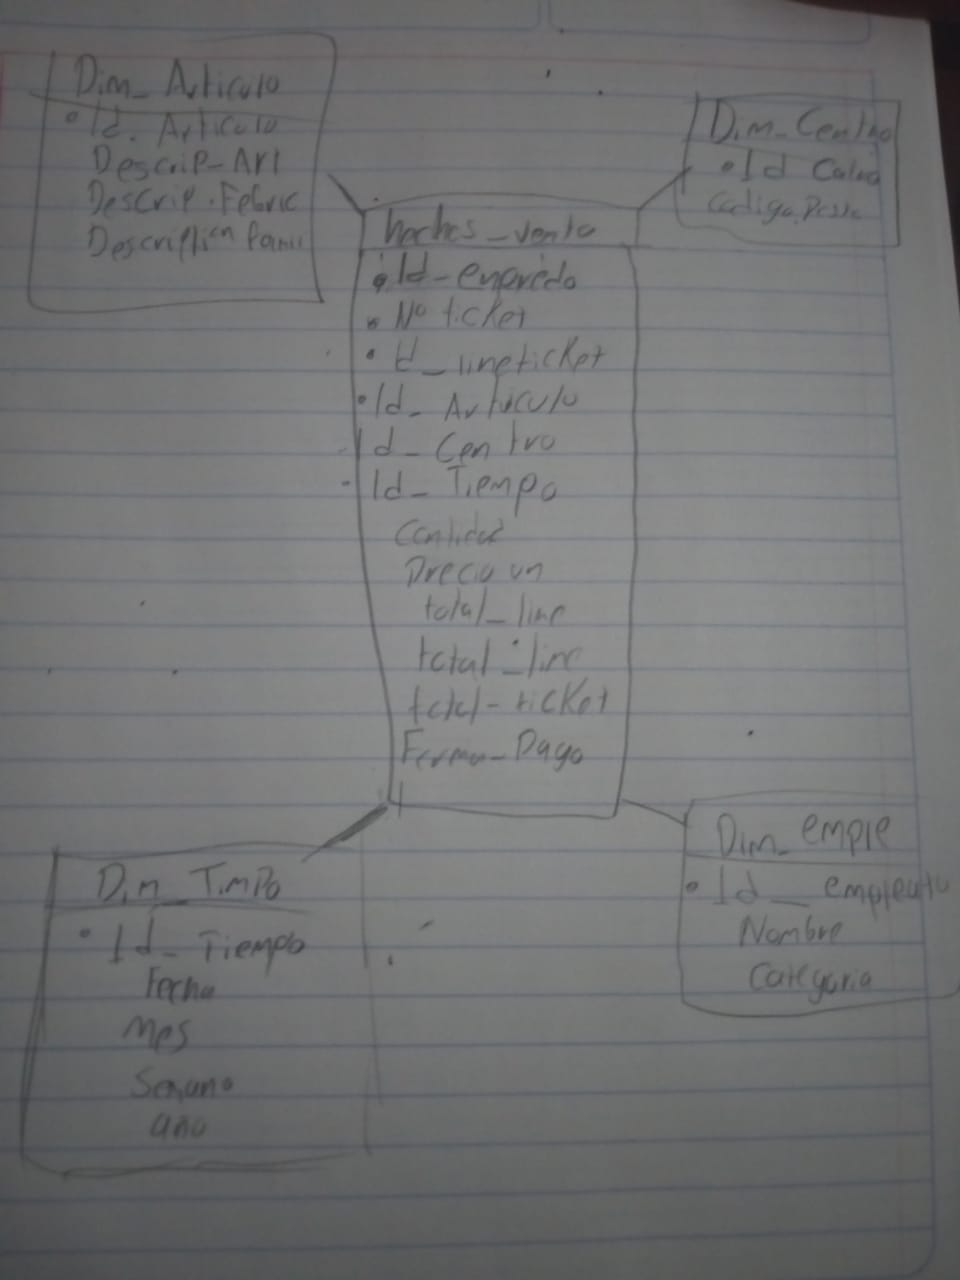 Dim_ Articulo
Id. Articulo
Descrip_Art
Descrip.Febric
Description
Dim_Centro
Id
hechos_venta
Id_
Nº ticket
Id_lineticket
Id_ Articulo
Id_ Centro
Id_ Tiempo
Cantidad
Precio un
total_line
total_line
total-ticket
Forma_Pago
Dim_Timpo
Id_Tiempo
Fecha
Mes
Semana
año
Dim_emple
Id__
Nombre
Categoria